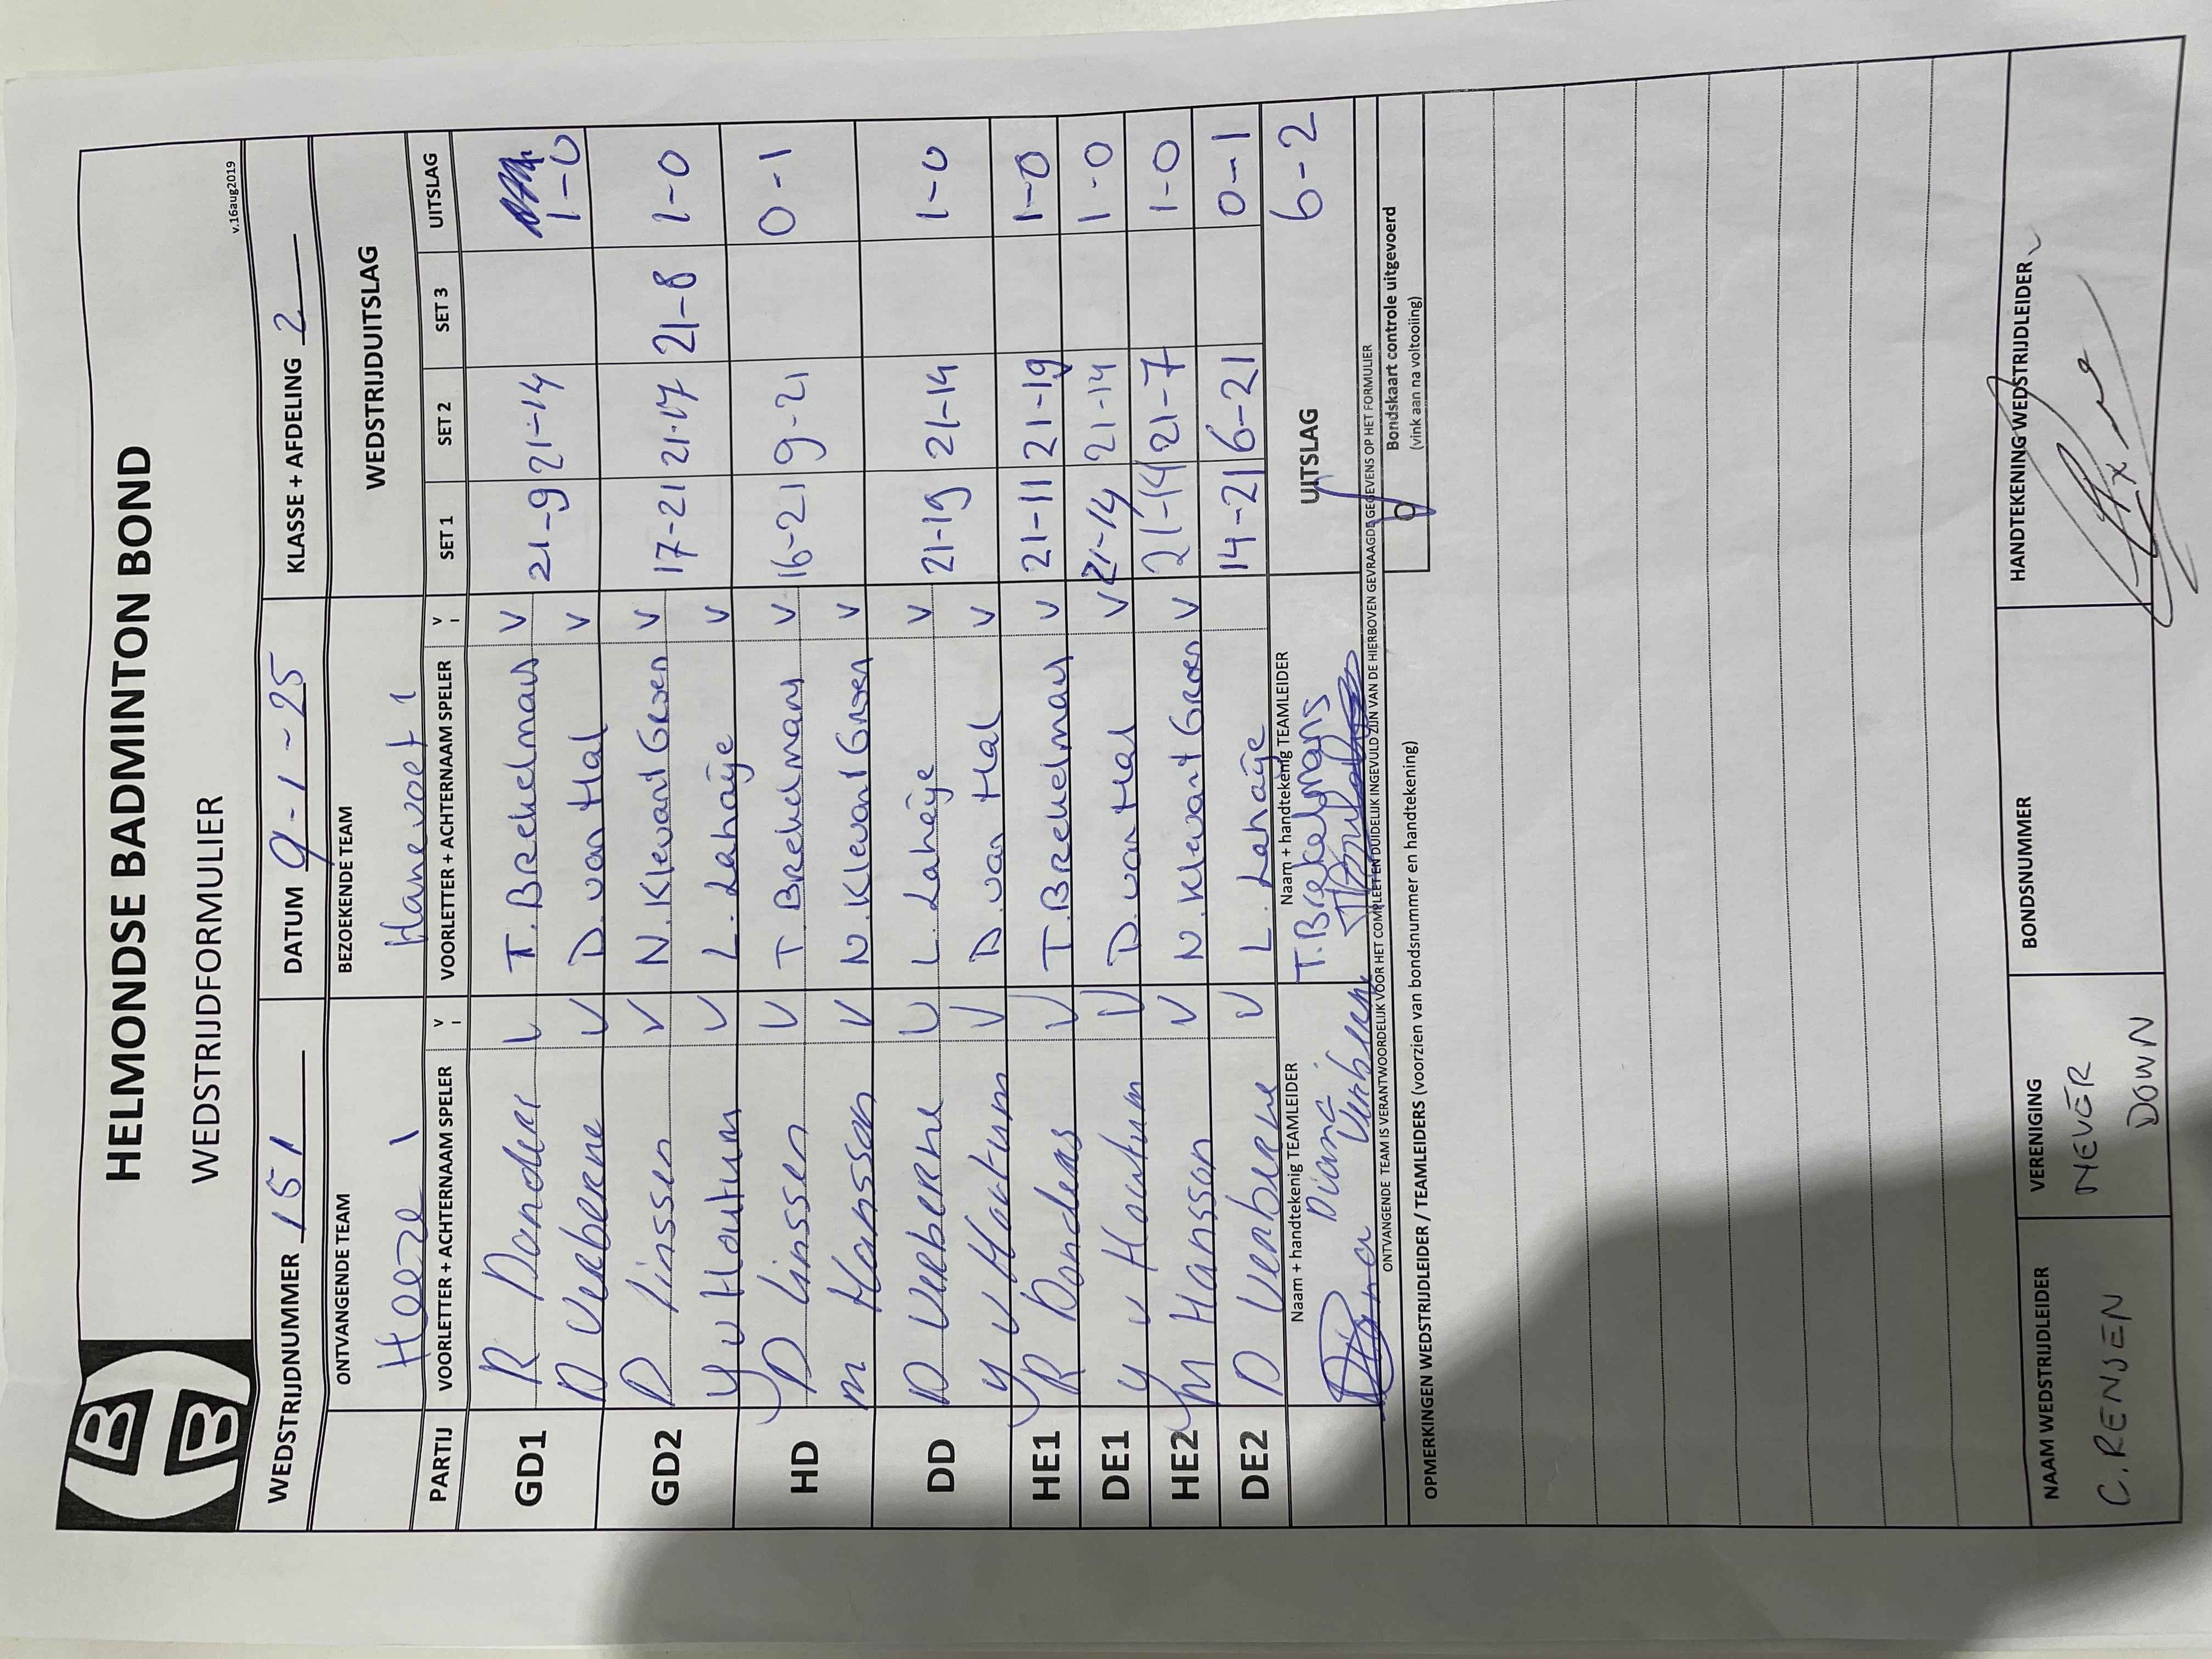 HELMONDSE BADMINTON BOND
WEDSTRIJDFORMULIER
v.16aug2019
WEDSTRIJDNUMMER 151 DATUM 9-1-25 KLASSE + AFDELING 2
ONTVANGENDE TEAM BEZOEKENDE TEAM WEDSTRIJDUITSLAG
Heeze 1 Hanevoet 1
PARTIJ VOORLETTER + ACHTERNAAM SPELER V VOORLETTER + ACHTERNAAM SPELER V SET 1 SET 2 SET 3 UITSLAG
GD1 R Donders V T. Brekelmans V 21-9 21-14 1-0
D Verberne V D. van Hal V
GD2 D Linssen V N. Klevant Groen V 17-21 21-17 21-8 1-0
Y v Houtum V L. Lahaije V
HD D Linssen V T Brekelmans V 16-21 9-21 0-1
M Hansson V N. Klevant Groen V
DD D Verberne V L. Lahaije V 21-19 21-14 1-0
Y v Houtum V D. van Hal V
HE1 R Donders V T. Brekelmans V 21-11 21-19 1-0
DE1 Y v Houtum V D. van Hal V 21-14 21-14 1-0
HE2 M Hansson V N. Klevant Groen V 21-14 21-7 1-0
DE2 D Verberne V L. Lahaije 14-21 6-21 0-1
Naam + handtekenig TEAMLEIDER Naam + handtekenig TEAMLEIDER UITSLAG 6-2
Diana Verberne T. Brekelmans
ONTVANGENDE TEAM IS VERANTWOORDELIJK VOOR HET COMPLEET EN DUIDELIJK INGEVULD ZIJN VAN DE HIERBOVEN GEVRAAGDE GEGEVENS OP HET FORMULIER
Bondskaart controle uitgevoerd
(vink aan na voltooiing)
OPMERKINGEN WEDSTRIJDLEIDER / TEAMLEIDERS (voorzien van bondsnummer en handtekening)
NAAM WEDSTRIJDLEIDER VERENIGING BONDSNUMMER HANDTEKENING WEDSTRIJDLEIDER
C. RENSEN NEVER
DOWN